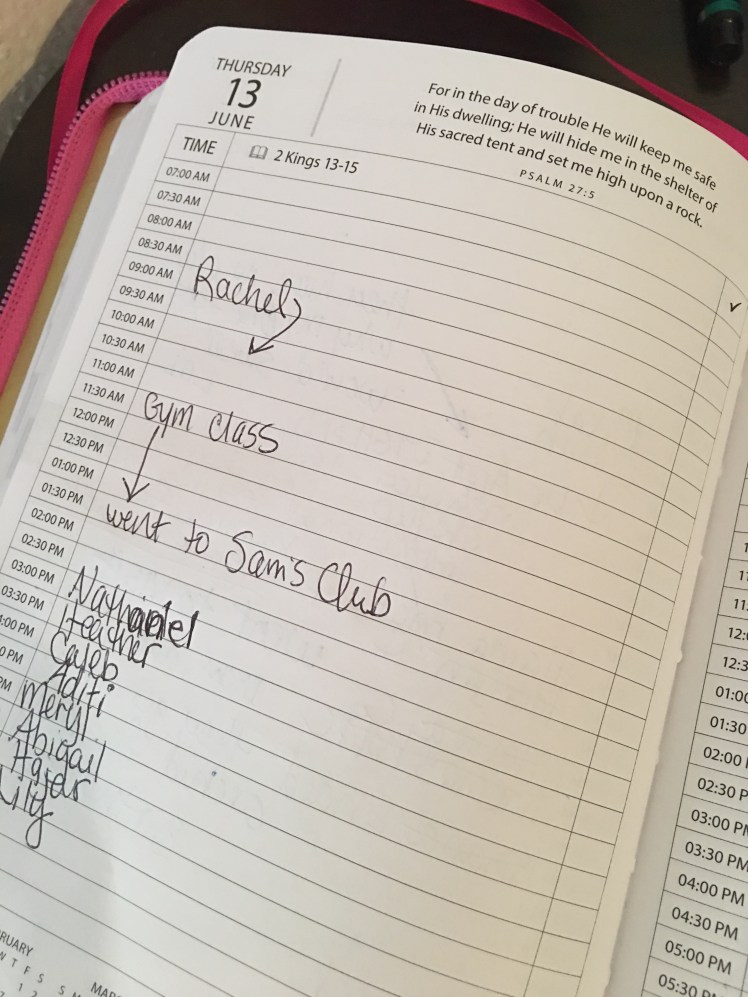 THURSDAY
13
JUNE
For in the day of trouble He will keep me safe
in His dwelling; He will hide me in the shelter of
His sacred tent and set me high upon a rock.
PSALM 27:5
TIME
2 Kings 13-15
✓
07:00 AM
07:30 AM
08:00 AM
08:30 AM
09:00 AM
Rachel
09:30 AM
10:00 AM
10:30 AM
11:00 AM
11:30 AM
Gym class
12:00 PM
12:30 PM
01:00 PM
01:30 PM
went to Sam's Club
02:00 PM
02:30 PM
03:00 PM
Nathaniel
03:30 PM
Heather
:00 PM
Caleb
0 PM
Aditi
PM
Meryl
Abigail
Hajar
Lily
RUARY
W T F S S M
1 2
MAR
1
11
11:
12:0
12:3
01:00
01:30
02:00
02:30 P
03:00 PM
03:30 PM
04:00 PM
04:30 PM
05:00 PM
05:30 PM